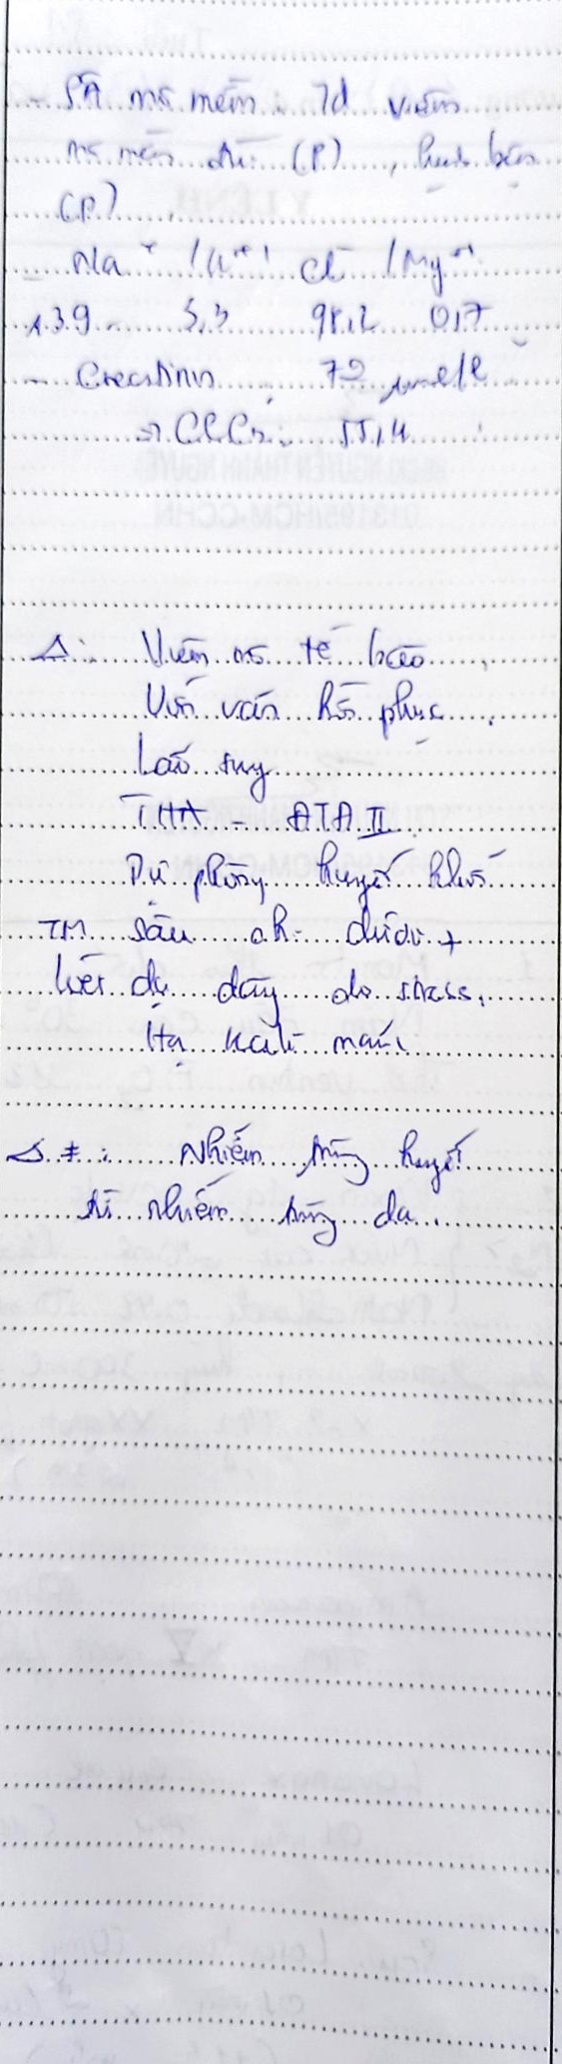 - SA mô mềm: Td viêm
mô mềm đùi (P), bìu
(P).
- Na⁺ / K⁺ / Cl⁻ / Mg⁺⁺
139 3,3 98,2 0,7
- Creatinin: 72 µmol/l
=> ClCr: 55,4
Δ: Viêm mô tế bào
Lão suy
THA - ĐTĐ II
Dự phòng huyết khối
TM sâu chi dưới +
loét dạ dày do stress.
Hạ kali máu
Δ ≠: Nhiễm trùng huyết
từ nhiễm trùng da.